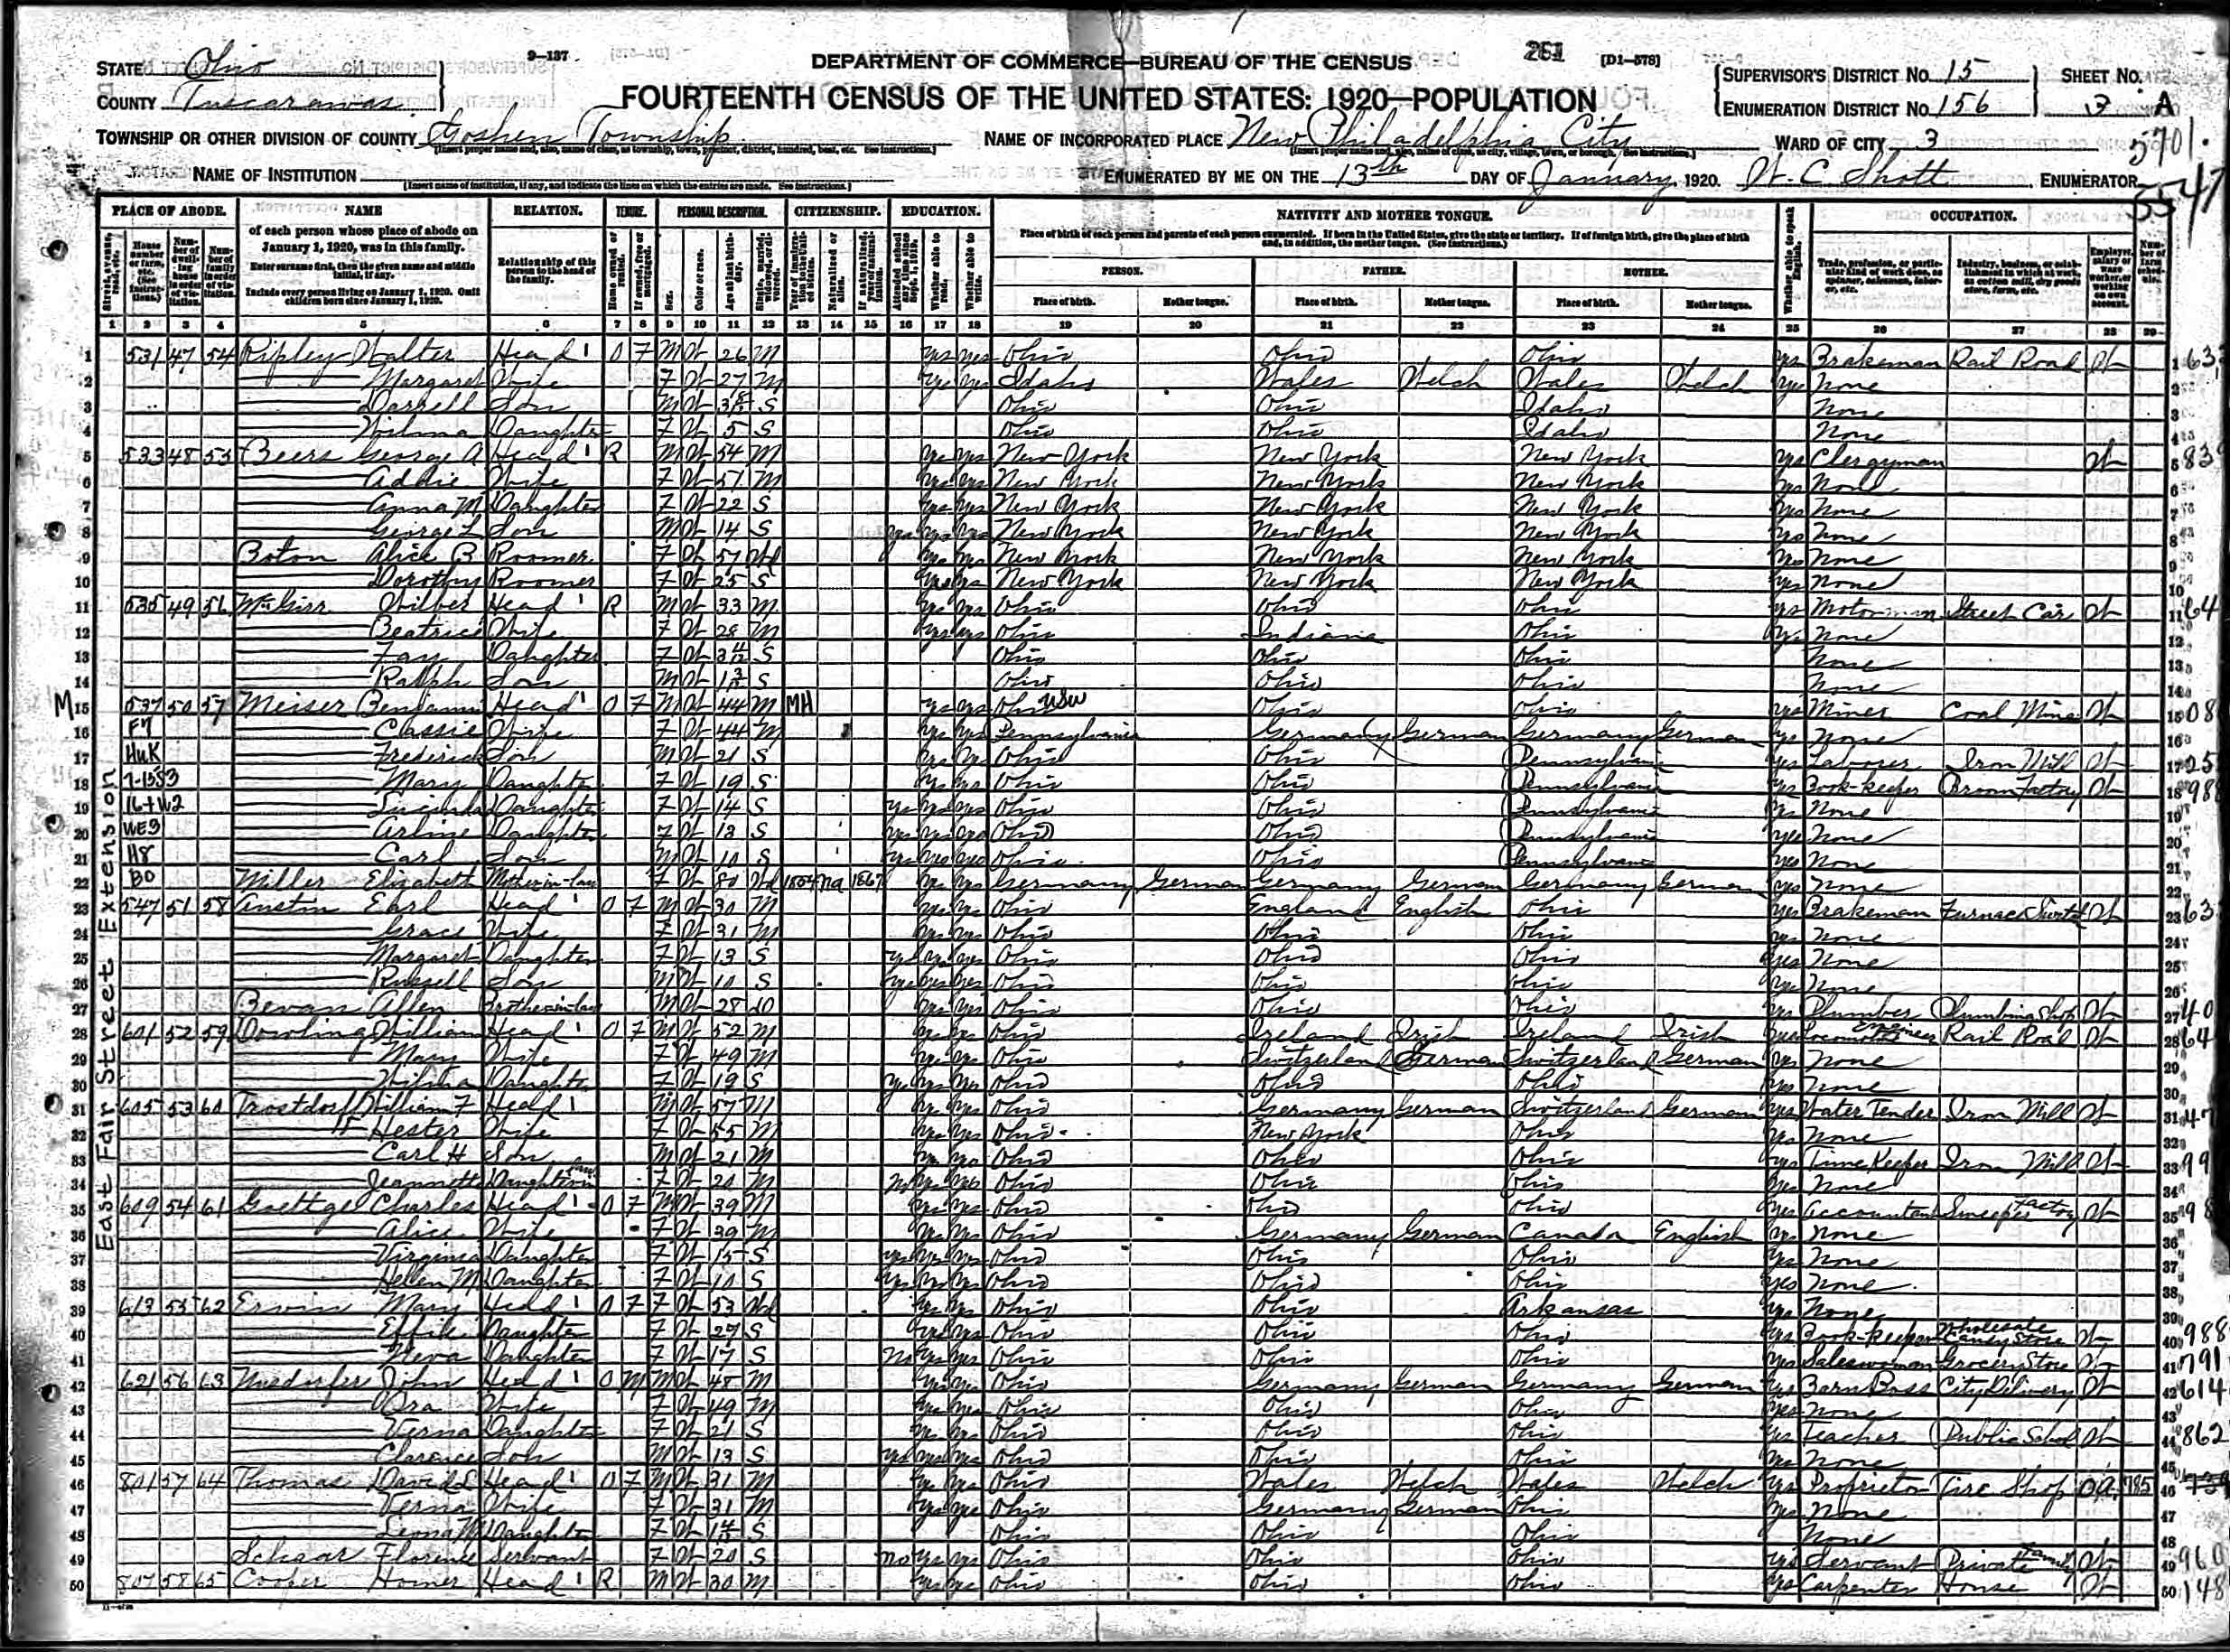 9-137
DEPARTMENT OF COMMERCE—BUREAU OF THE CENSUS
251 [D1-578]
STATE Ohio
COUNTY Tuscarawas
FOURTEENTH CENSUS OF THE UNITED STATES: 1920—POPULATION
SUPERVISOR'S DISTRICT No. 15
ENUMERATION DISTRICT No. 156
SHEET No. 3 A
TOWNSHIP OR OTHER DIVISION OF COUNTY Goshen Township
NAME OF INCORPORATED PLACE New Philadelphia City
WARD OF CITY 3
5701.
NAME OF INSTITUTION
ENUMERATED BY ME ON THE 13th DAY OF January, 1920. W. C. Shott, ENUMERATOR
5547
PLACE OF ABODE. NAME RELATION. TENURE. PERSONAL DESCRIPTION. CITIZENSHIP. EDUCATION. NATIVITY AND MOTHER TONGUE. OCCUPATION.
of each person whose place of abode on January 1, 1920, was in this family.
Enter surname first, then the given name and middle initial, if any.
Include every person living on January 1, 1920. Omit children born since January 1, 1920.
Relationship of this person to the head of the family.
Place of birth of each person and parents of each person enumerated. If born in the United States, give the state or territory. If of foreign birth, give the place of birth and, in addition, the mother tongue. (See instructions.)
PERSON. FATHER. MOTHER.
Place of birth. Mother tongue. Place of birth. Mother tongue. Place of birth. Mother tongue.
1 2 3 4 5 6 7 8 9 10 11 12 13 14 15 16 17 18 19 20 21 22 23 24 25 26 27 28 29
East Fair Street Extension
1 531 47 54 Ripley Walter Head 1 O F M W 26 M yes yes Ohio Ohio Ohio yes Brakeman Rail Road W
2 Margaret Wife F W 27 M yes yes Idaho Wales Welch Wales Welch yes None
3 Darrell Son M W S Ohio Ohio Idaho None
4 Wilma Daughter F W 5 S Ohio Ohio Idaho None
5 533 48 55 Beers George A Head 1 R M W 54 M yes yes New York New York New York yes Clergyman W
6 Addie Wife F W 57 M yes yes New York New York New York yes None
7 Anna M Daughter F W 22 S yes yes New York New York New York yes None
8 George L Son M W 14 S yes yes yes New York New York New York yes None
9 Boton Alice B Roomer F W 57 Wd yes yes New York New York New York yes None
10 Dorothy Roomer F W 25 S yes yes New York New York New York yes None
11 535 49 56 Wilber Head 1 R M W 33 M yes yes Ohio Ohio Ohio yes Motorman Street Car W
12 Beatrice Wife F W 28 M yes yes Ohio Indiana Ohio yes None
13 Fay Daughter F W 3 4/12 S Ohio Ohio Ohio None
14 Ralph Son M W S Ohio Ohio Ohio None
15 M 537 50 57 Meiser Benjamin Head 1 O F M W 44 M MH yes yes Ohio Ohio Ohio yes Miner Coal Mine W
16 F7 Cassie Wife F W 44 M yes yes Pennsylvania Germany German Germany German yes None
17 HuK Frederick Son M W 21 S yes yes Ohio Ohio Pennsylvania yes Laborer Iron Mill W
18 Mary Daughter F W 19 S yes yes Ohio Ohio Pennsylvania yes Book-keeper Broom Factory W
19 Lucinda Daughter F W 14 S yes yes yes Ohio Ohio Pennsylvania yes None
20 WE3 Arline Daughter F W 13 S yes yes yes Ohio Ohio Pennsylvania yes None
21 H8 Carl Son M W 10 S yes yes yes Ohio Ohio Pennsylvania yes None
22 BO Miller Elizabeth Mother-in-law F W 80 Wd 1854 Na 1867 yes yes Germany German Germany German Germany German yes None
23 547 51 58 Austin Earl Head 1 O F M W 30 M yes yes Ohio England English Ohio yes Brakeman Furnace W
24 Grace Wife F W 31 M yes yes Ohio Ohio Ohio yes None
25 Margaret Daughter F W 13 S yes yes yes Ohio Ohio Ohio yes None
26 Russell Son M W 10 S yes yes yes Ohio Ohio Ohio yes None
27 Bevan Allen Brother-in-law M W 28 yes yes Ohio Ohio Ohio yes Plumber Plumbing Shop W
28 601 52 59 Dowling William Head 1 O F M W 52 M yes yes Ohio Ireland Irish Ireland Irish yes Locomotive Engineer Rail Road W
29 Mary Wife F W 49 M yes yes Ohio Switzerland German Switzerland German yes None
30 Wilma Daughter F W 19 S yes yes yes Ohio Ohio Ohio yes None
31 605 53 60 Trostdorf William F Head 1 M W 57 M yes yes Ohio Germany German Switzerland German yes Water Tender Iron Mill W
32 Hester Wife F W 55 M yes yes Ohio New York Ohio yes None
33 Carl H Son M W 21 M yes yes Ohio Ohio Ohio yes Time Keeper Iron Mill W
34 Jeannette Daughter in law F W 20 M No yes yes Ohio Ohio Ohio yes None
35 609 54 61 Goettge Charles Head 1 O F M W 39 M yes yes Ohio Ohio Ohio yes Accountant Sweeper Factory W
36 Alice Wife F W 39 M yes yes Ohio Germany German Canada English yes None
37 Virginia Daughter F W 15 S yes yes yes Ohio Ohio Ohio yes None
38 Helen M Daughter F W 10 S yes yes yes Ohio Ohio Ohio yes None
39 613 55 62 Ervin Mary Head 1 O F F W 53 Wd yes yes Ohio Ohio Arkansas yes None
40 Effie Daughter F W 27 S yes yes Ohio Ohio Ohio yes Book-keeper Wholesale Candy Store W
41 Neva Daughter F W 17 S No yes yes Ohio Ohio Ohio yes Saleswoman Grocery Store W
42 621 56 63 Nusdorfer John Head 1 O M M W 48 M yes yes Ohio Germany German Germany German yes Barn Boss City Delivery W
43 Ora Wife F W 49 M yes yes Ohio Ohio Ohio yes None
44 Verna Daughter F W 21 S yes yes Ohio Ohio Ohio yes Teacher Public School W
45 Clarence Son M W 13 S yes yes yes Ohio Ohio Ohio yes None
46 801 57 64 Thomas David L Head 1 O F M W 31 M yes yes Ohio Wales Welch Wales Welch yes Proprietor Tire Shop OA 785
47 Verna Wife F W 31 M yes yes Ohio Germany German Ohio yes None
48 Leona M Daughter F W S Ohio Ohio Ohio None
49 Schaar Florence Servant F W 20 S No yes yes Ohio Ohio Ohio yes Servant Private Family W
50 807 58 65 Cooper Homer Head 1 R M W 30 M yes yes Ohio Ohio Ohio yes Carpenter House W